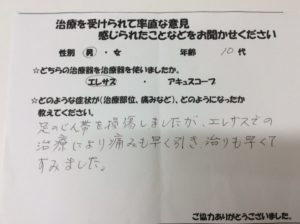 治療を受けられて率直な意見
感じられたことなどをお聞かせください
性別 男・女 年齢 10代
☆どちらの治療器を治療器を使いましたか。
エレサス ・ アキュスコープ
☆どのような症状が(治療部位、痛みなど)、どのようになったか
教えてください。
足のじん帯を損傷しましたが、エレサスでの
治療により痛みも早く引き、治りも早くて
すみました。
ご協力ありがとうございました。